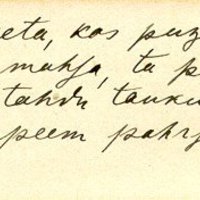 eta, kas puz
mahja, ta p
tahdu tauku
peem pahr